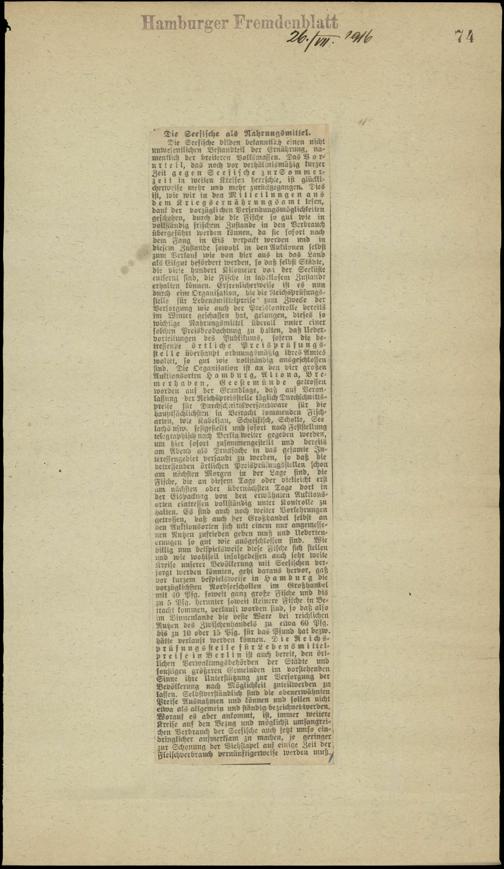 Hamburger Fremdenblatt
26./VII. 1916
74
Die Seefische als Nahrungsmittel.
Die Seefische bilden bekanntlich einen nicht
unwesentlichen Bestandteil der Ernährung, na-
mentlich der breiteren Volksmassen. Das Vor-
urteil, das noch vor verhältnismäßig kurzer
Zeit gegen Seefische zur Sommer-
zeit in weiten Kreisen herrschte, ist glückli-
cherweise mehr und mehr zurückgegangen. Dies
ist, wie wir in den Mitteilungen aus
dem Kriegsernährungsamt lesen,
dank der vorzüglichen Versendungsmöglichkeiten
geschehen, durch die die Fische so gut wie in
vollständig frischem Zustande in den Verbrauch
übergeführt werden können, da sie sofort nach
dem Fang in Eis verpackt werden und in
diesem Zustande sowohl in den Auktionen selbst
zum Verkauf wie von hier aus in das Land
als Eilgut befördert werden, so daß selbst Städte,
die viele hundert Kilometer von der Seeküste
entfernt sind, die Fische in tadellosem Zustande
erhalten können. Erfreulicherweise ist es nun
durch eine Organisation, die die Reichsprüfungs-
stelle für Lebensmittelpreise zum Zwecke der
Versorgung wie auch der Preiskontrolle bereits
im Winter geschaffen hat, gelungen, dieses so
wichtige Nahrungsmittel überall unter einer
solchen Preisbeobachtung zu halten, daß Ueber-
vorteilungen des Publikums, sofern die be-
treffende örtliche Preisprüfungs-
stelle überhaupt ordnungsmäßig ihres Amtes
waltet, so gut wie vollständig ausgeschlossen
sind. Die Organisation ist an den vier großen
Auktionsorten Hamburg, Altona, Bre-
merhaven, Geestemünde getroffen
worden auf der Grundlage, daß auf Veran-
lassung der Reichspreisstelle täglich Durchschnitts-
preise für Durchschnittsversandware für die
hauptsächlichsten in Betracht kommenden Fisch-
arten, wie Kabeljau, Schellfisch, Scholle, See
lachs usw. festgestellt und sofort nach Feststellung
telegraphisch nach Berlin weiter gegeben werden,
um hier sofort zusammengestellt und bereits
am Abend als Drucksache in das gesamte In-
teressengebiet versandt zu werden, so daß die
betreffenden örtlichen Preisprüfungsstellen schon
am nächsten Morgen in der Lage sind, die
Fische, die an diesem Tage oder vielleicht erst
am nächsten oder übernächsten Tage dort in
der Eispackung von den erwähnten Auktions-
orten eintreffen vollständig unter Kontrolle zu
halten. Es sind auch noch weiter Vorkehrungen
getroffen, daß auch der Großhandel selbst an
den Auktionsorten sich mit einem nur angemesse-
nen Nutzen zufrieden geben muß und Ueberten-
erungen so gut wie ausgeschlossen sind. Wie
billig nun beispielsweise diese Fische sich stellen
und wie wohlfeil infolgedessen auch sehr weite
Kreise unserer Bevölkerung mit Seefischen ver-
sorgt werden könnten, geht daraus hervor, daß
vor kurzem beispielsweise in Hamburg die
vorzüglichsten Nordseeschollen im Großhandel
mit 40 Pfg. soweit ganz große Fische und bis
zu 5 Pfg. herunter soweit kleinere Fische in Be-
tracht kommen, verkauft worden sind, so daß also
im Binnenlande die beste Ware bei reichlichen
Nutzen des Zwischenhandels zu etwa 60 Pfg.
bis zu 10 oder 15 Pfg. für das Pfund hat bezw.
hätte verkauft werden können. Die Reichs-
prüfungsstelle für Lebensmittel-
preise in Berlin ist auch bereit, den ört-
lichen Verwaltungsbehörden der Städte und
sonstigen größeren Gemeinden im vorstehenden
Sinne ihre Unterstützung zur Versorgung der
Bevölkerung nach Möglichkeit zuteilwerden zu
lassen. Selbstverständlich sind die obenerwähnten
Preise Ausnahmen und können und sollen nicht
etwa als allgemein und ständig bezeichnet werden.
Worauf es aber ankommt, ist, immer weitere
Kreise auf den Bezug und möglichst umfangrei-
chen Verbrauch der Seefische auch jetzt umso ein-
dringlicher aufmerksam zu machen, je geringer
zur Schonung der Viehstapel auf einige Zeit der
Fleischverbrauch vernünftigerweise werden muß.